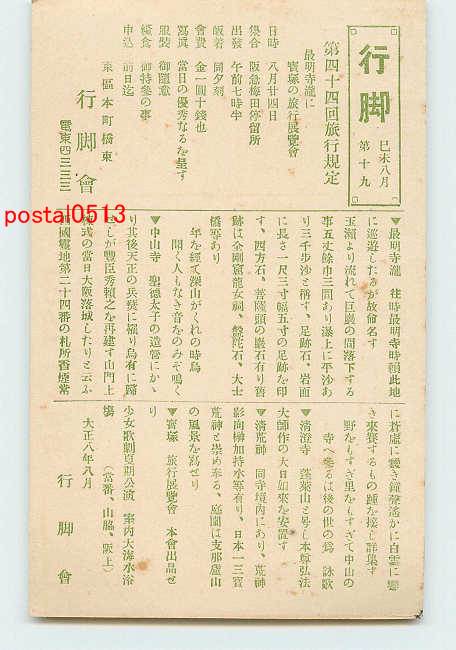 行脚
巳未八月
第十九
第四十四回旅行規定
最明寺瀧に
寳塚の旅行展覽會
日時 八月廿四日
集合 阪急梅田停留所
出發 午前七時半
皈着 同夕刻
會費 金一圓十錢也
寫眞 當日の優秀なるを呈す
服裝 御隨意
糧食 御持參の事
申込 前日迄
東區本町橋東
行脚會
電東四三三三
▼最明寺瀧 往時最明寺時頼此地
に巡遊したるが故命名す
玉瀬より流れて巨巖の間落下する
事五丈餘巾三間あり瀑上に平沙あ
り三千步沙と稱す、足跡石、岩面
に長さ一尺三寸幅五寸の足跡を印
す、四方石、菩薩頭の巖石有り舊
跡は金剛窟龍女祠、盤陀石、大士
橋等あり
年を經て深山がくれの時鳥
聞く人もなき音をのみぞ鳴く
▼中山寺 聖德太子の造營にかゝ
り其後天正の兵燹に罹り烏有に歸
せしが豐臣秀賴之を再建す山門上
式の當日大阪落城したりと云ふ
西國靈地第二十四番の札所香煙常
に蒼慮に靉き鐘聲遙かに白雲に響
き來賽するもの踵を接し群集す
野をもすぎ里をもすぎて中山の
寺へ參るは後の世の爲 詠歌
▼清澄寺 蓬萊山と号し本尊弘法
大師作の大日如來を安置す
▼清荒神 同寺境內にあり、荒神
影向榊加持水等有り、日本一三寳
荒神と崇め奉る、庭園は支那廬山
の風景を寫せり
▼寳塚 旅行展覽會 本會出品せ
り
少女歌劇夏期公演 案內大海水浴
塲 (當番、山脇、阪上)
大正八年八月
行脚會
postal0513